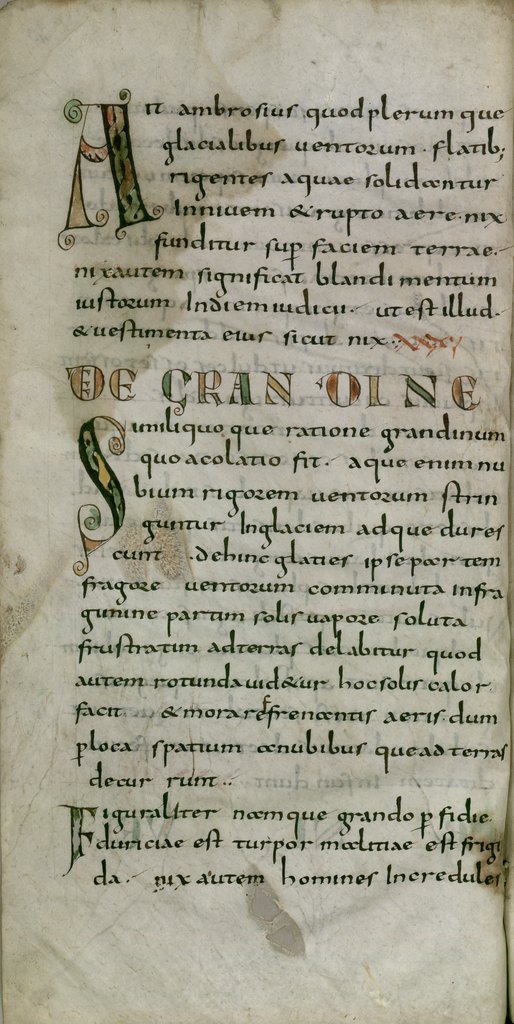 Ait ambrosius quod plerum que
glacialibus uentorum · flatib;
rigentes aquae solidantur
Inniuem & rupto aere · nix
funditur sup faciem terrae ·
nixautem significat blandimentum
iustorum Indiem iudicii · ut est illud ·
& uestimenta eius sicut nix ·
DE GRANDINE
Simili quo que ratione grandinum
quoacolatio fit · aque enim nu
bium rigorem uentorum strin
guntur Inglaciem adque dures
cunt · dehinc glaties ipse partem
fragore uentorum comminuta infra
gmine partim solis uapore soluta
frustratim adterras delabitur quod
autem rotunda uid&ur hocsolis calor
facit · & mora refrenantis aeris · dum
p loca spatium anubibus que ad terras
decur runt ··
Figuraliter nam que grando p fidie
duriciae est turpor malitiae est frigi
da · nix autem homines Incredules